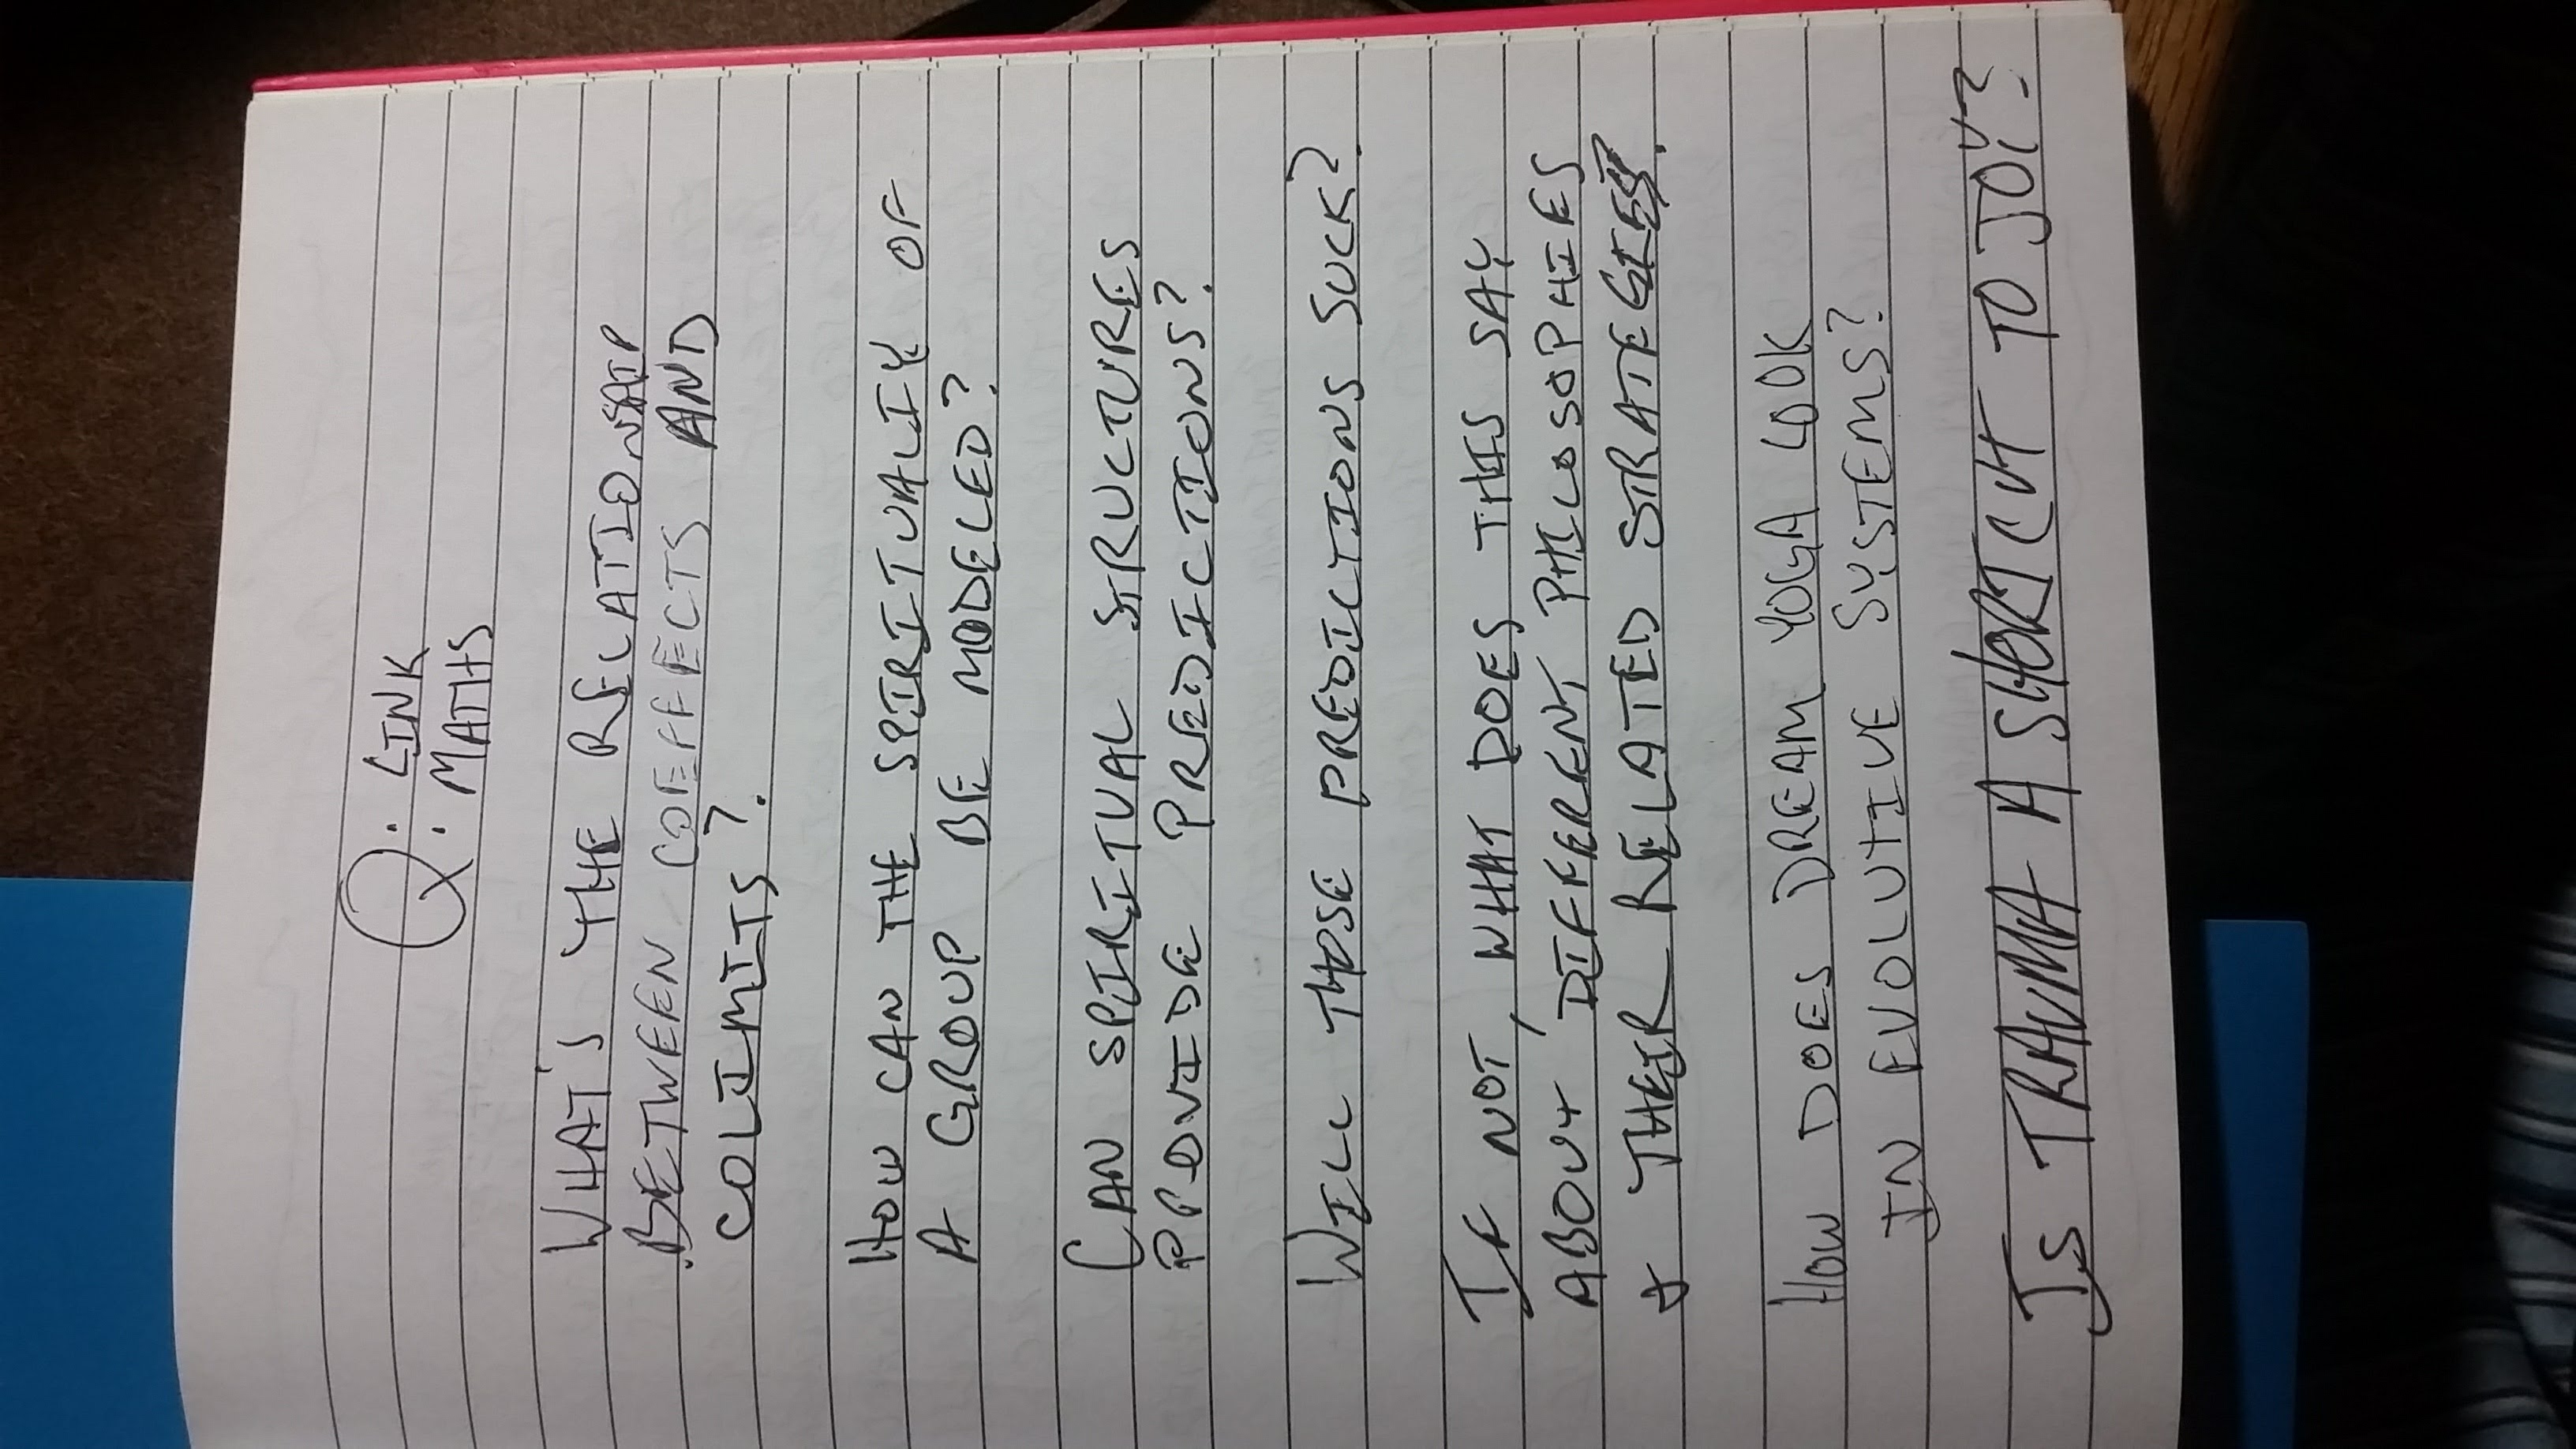 Q: LINK
: MATHS
WHAT'S THE RELATIONSHIP
BETWEEN COEFFECTS AND
COLIMITS?
HOW CAN THE SPIRITUALITY OF
A GROUP BE MODELED?
CAN SPIRITUAL STRUCTURES
PROVIDE PREDICTIONS?
WILL THOSE PREDICTIONS SUCK?
IF NOT, WHAT DOES THIS SAY
ABOUT DIFFERENT PHILOSOPHIES
& THEIR RELATED STRATEGIES?
HOW DOES DREAM YOGA LOOK
IN EVOLUTIVE SYSTEMS?
IS TRAUMA A SHORTCUT TO JOY?